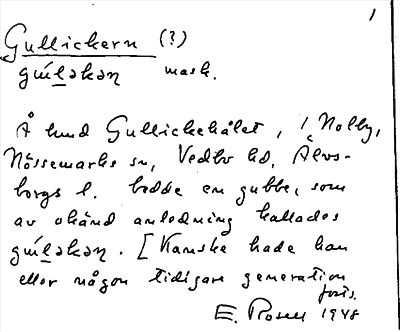 1
Gullickern (?)
gu̇́l̲əkən mask.
Å lund Gullickehålet, i Nolby,
Nössemarks sn, Vedbo hd, Älvs-
borgs l. bodde en gubbe, som
av okänd anledning kallades
gu̇́l̲əkən. [Kanske hade han
eller någon tidigare generation
forts.
E. Rosell 1948